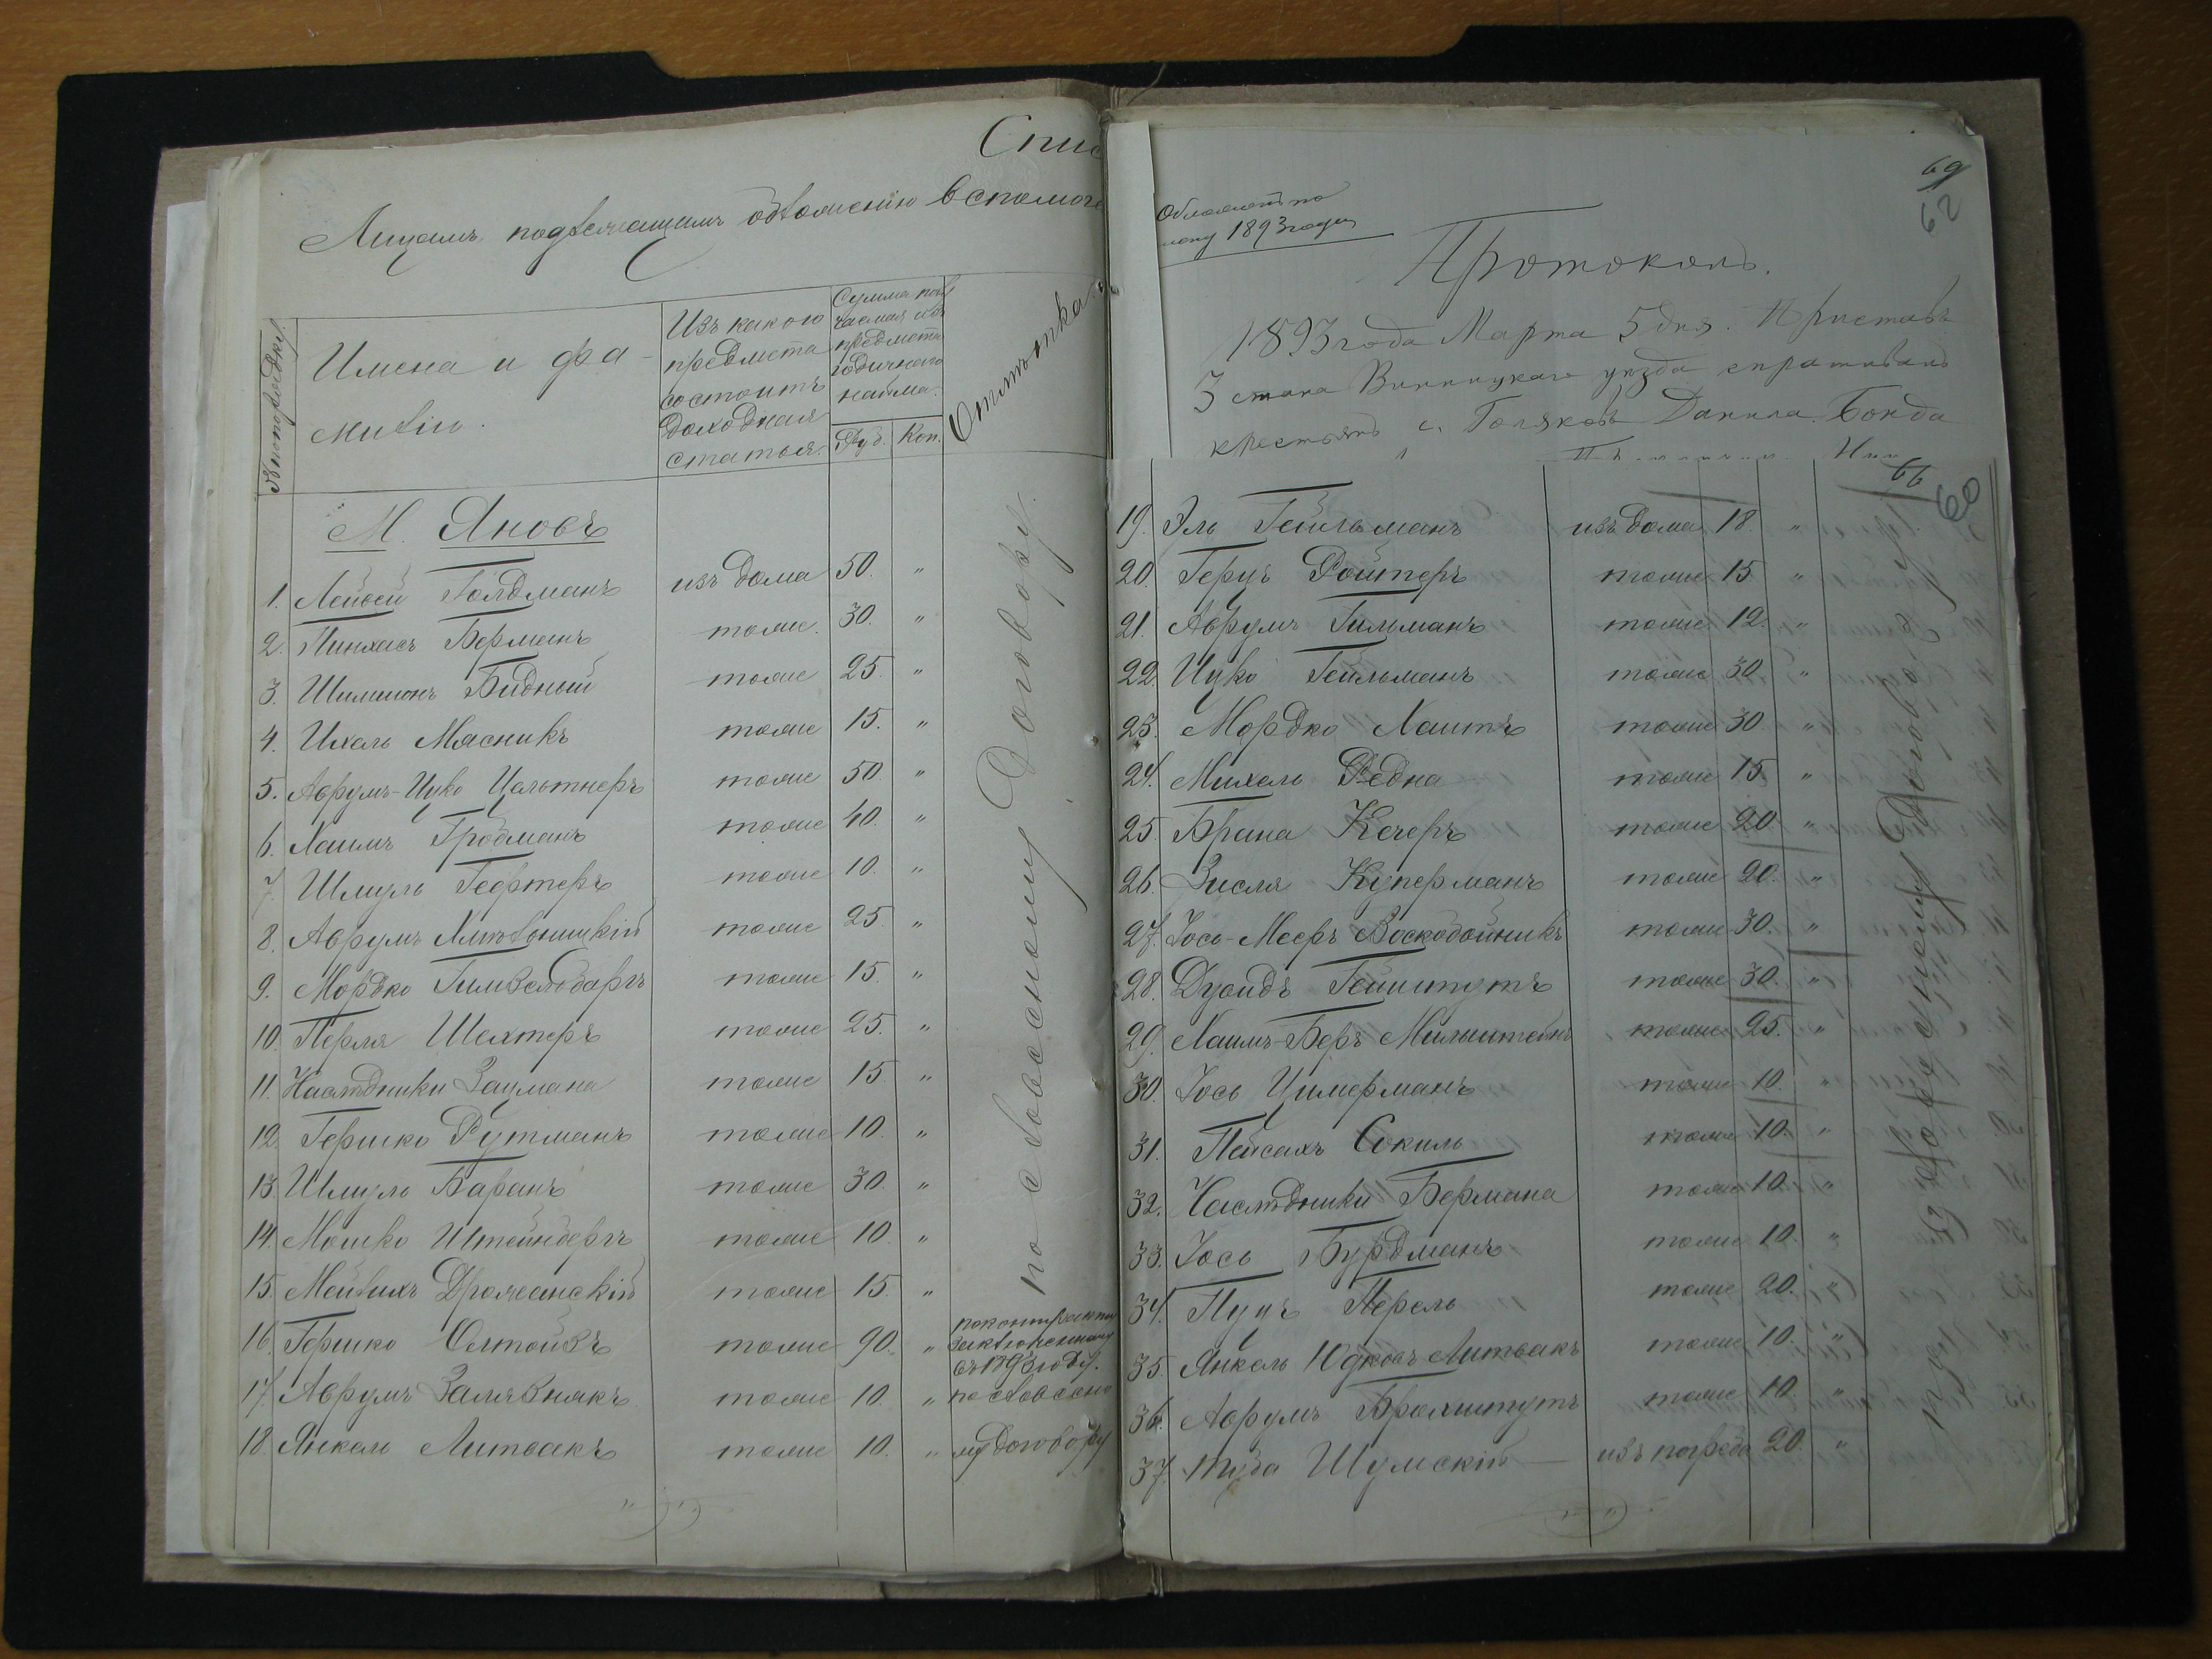 Спис
Лицамъ подлежащимъ обложенію вспомога
№ по порядку.
Имена и фа-
миліи.
Изъ какого
предмета
состоитъ
доходная
статья.
Сумма полу
чаемая изъ
предмета
годичнаго
найма.
Руб. Коп.
Отмѣтка
М. Яновъ
1. Лейбей Голдманъ изъ дома 50. "
2. Пинхасъ Берманъ тоже. 30. "
3. Шимшонъ Бидный тоже 25. "
4. Ихель Мясникъ тоже 15. "
5. Аврумъ-Ицко Цельтнеръ тоже 50 "
6. Хаимъ Гройманъ тоже 40. "
7. Шмуль Гефтеръ тоже 10. "
8. Аврумъ Хмѣльницкій тоже 25 "
9. Мордко Гимзельбаргъ тоже 15. "
10. Перля Шехтеръ тоже 25. "
11. Наслѣдники Заумана тоже 15. "
12. Гершко Рутманъ тоже 10. "
13. Шмуль Баранъ тоже 30. "
14. Мошко Штейнбергъ тоже 10. "
15. Мейлихъ Дрожанскій тоже 15. "
16. Гершко Селтойзъ тоже 90. "
17. Аврумъ Залязнякъ тоже 10. "
18. Янкель Литвакъ тоже 10. "
по словесному Договору.
по контракту
заключенному
въ 1893 году.
по словесно
му договору
69
62
1893 года
Протоколъ.
1893 года Марта 5 дня. Приставъ
3 стана Винницкаго уѣзда спрашивалъ
крестьянъ с. Голяковъ Данила Бонда
66
60
19. Эль Гейльманъ изъ дома 18. "
20. Герцъ Ройтеръ тоже 15 "
21. Аврумъ Гильманъ тоже 12. "
22. Ицко Гейльманъ тоже 30 "
23. Мордко Хаитъ тоже 30. "
24. Михель Редка тоже 15 "
25. Брана Кечеръ тоже 20 "
26. Зисля Куперманъ тоже 20. "
27. Іось-Мееръ Воскобойникъ тоже 30. "
28. Дувидъ Гейштутъ тоже 30. "
29. Хаимъ-Беръ Мильштейнъ тоже 25. "
30. Іось Цимерманъ тоже 10. "
31. Пейсахъ Сокиль тоже 10. "
32. Наслѣдники Бермана тоже 10. "
33. Іось Бурдманъ тоже 10. "
34. Пуцъ Перель тоже 20. "
35. Янкель Юдковъ Литвакъ тоже 10. "
36. Аврумъ Бромштутъ тоже 10. "
37. Іуда Шумскій — изъ погреба 20. "
по словесному Договору